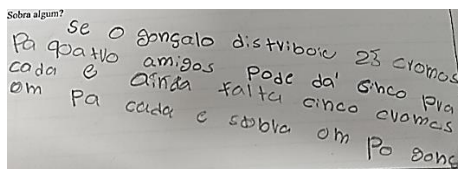 Sobra algum?
Se o gonçalo distriboic 23 cromos
Pa qoatvo amigos Pode da' Sinco Pra
cada e ainda falta cinco cvomos
om Pa cada e sobva om Po gonç